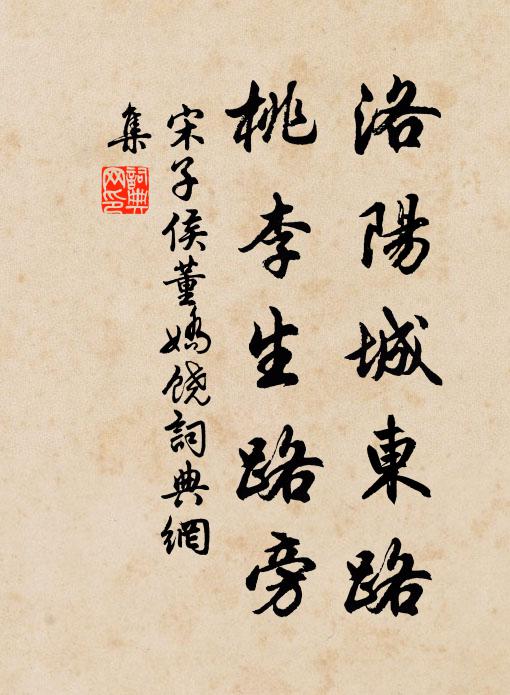 洛陽城東路
桃李生路旁
宋子侯董嬌饒詞典網
集
詞典
网印